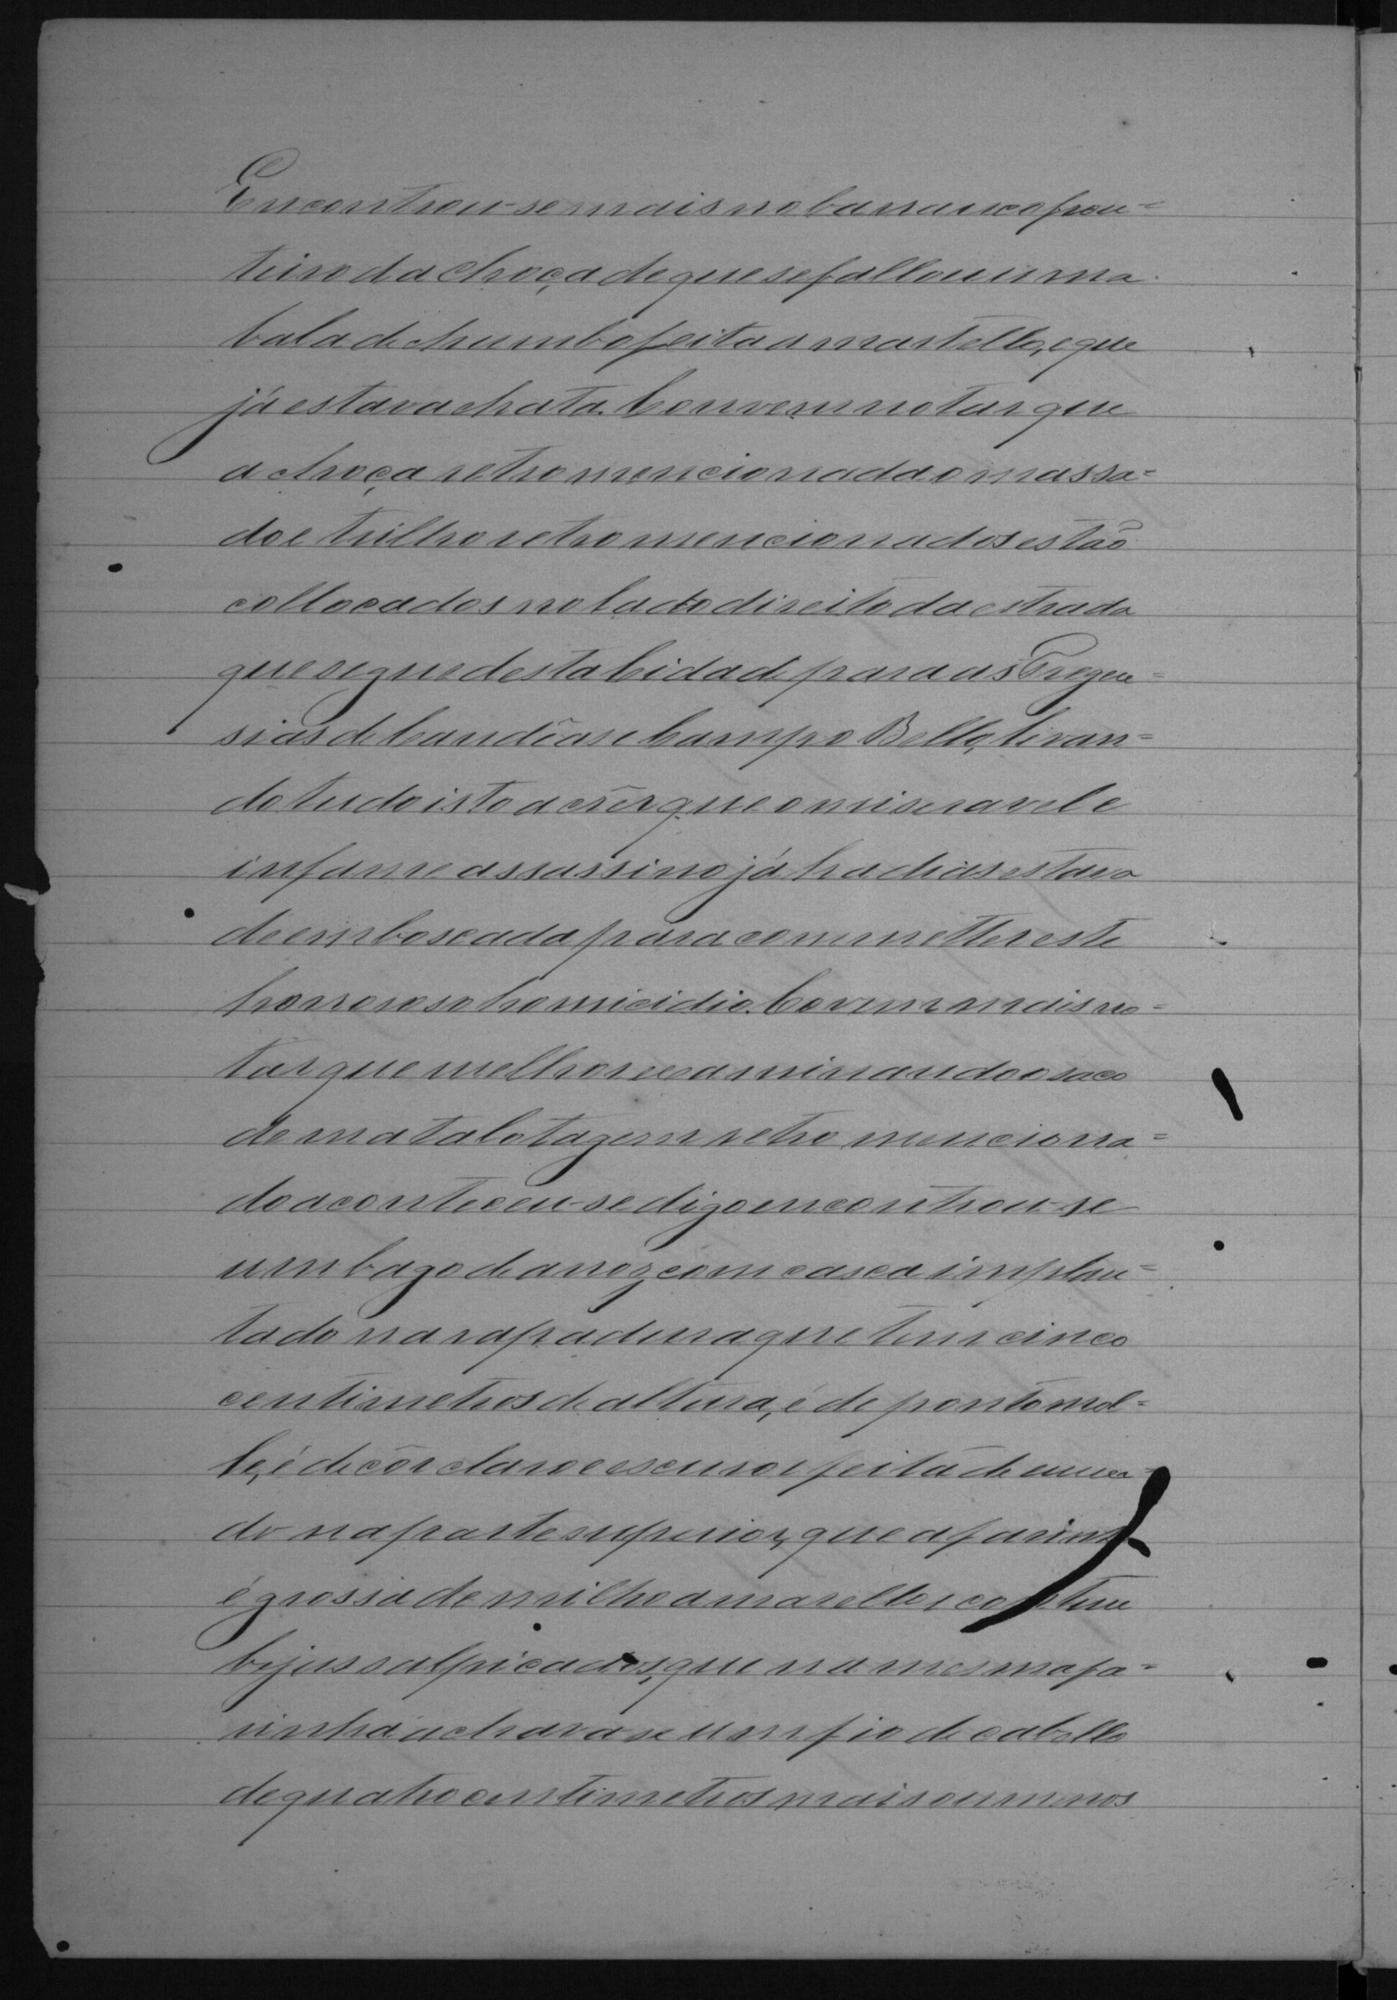 Encontrou-se mais no barranco fron=
teiro da choça de que se fallou uma
bala de chumbo feita a martello, e que
já estava chata. Convem notar que
a choça retro mencionada o massa=
do e trilho retro mencionados estão
collocados no lado direito da estrada
que segue desta Cidade para as Fregue=
sias de Candêas e Campo Bello, levan=
do tudo isto a crêr que o miseravel e
infame assassino já ha dias estava
de emboscada para commetter este
horroroso homicidio. Convem mais no=
tar que melhor examinando o saco
de matalotagem retro menciona=
do aconteceu-se digo encontrou-se
um bago de arroz com casca implan=
tado na rapadura que tem cinco
centimetros de altura, é de ponto mol=
le, é de côr claro e escuro e feita de
do na parte superior, que a farinha
é grossa de milho amarello e contem
bijus salpicados, que na mesma fa=
rinha achava se um fio de cabello
de quatro centimetros mais ou menos